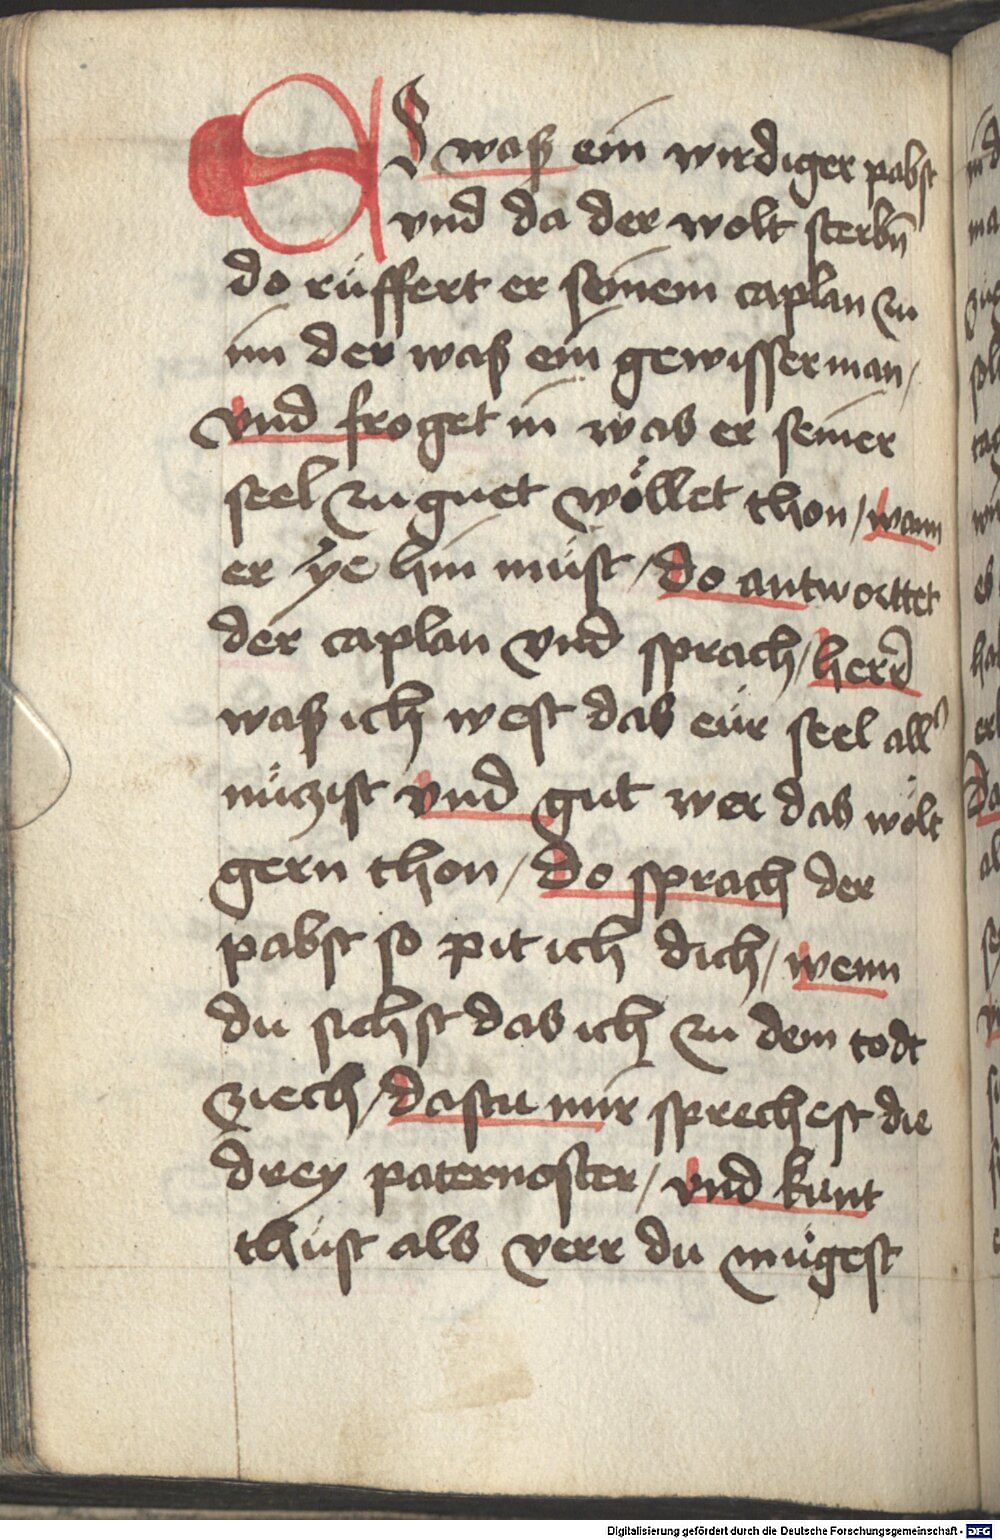 ES waß ein wirdiger pabst
vnd da der wolt sterbn̄
do rüffert er seinem caplan zu
im der waß ein gewisser man /
vnd froget in was er seiner
seel zu guet wöllet thon / wann
er ye hin müst / do antworttet
der caplan vnd sprach / herr̄
waß ich west das eür seel all
nüczist vnd gut wer das wölt
gern thon / do sprach der
pabst so pit ich dich / wenn
du sichst das ich zu dem todt
ziech / dastu mir sprechest die
drey paternoster / vnd kunt
thüst als verr du mügest
Digitalisierung gefördert durch die Deutsche Forschungsgemeinschaft - DFG